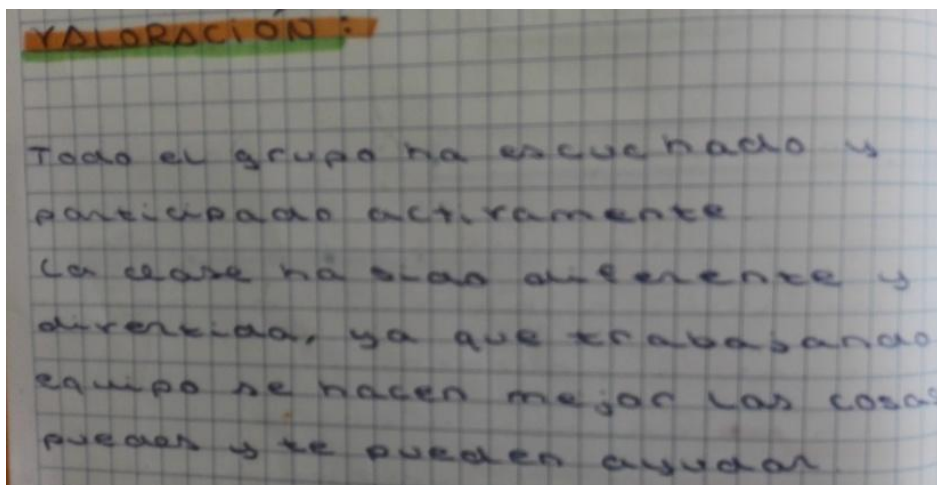 VALORACIÓN:
Todo el grupo ha escuchado y
participado activamente.
La clase ha sido diferente y
divertida, ya que trabajando
equipo se hacen mejor las cosas
puedes y te pueden ayudar.